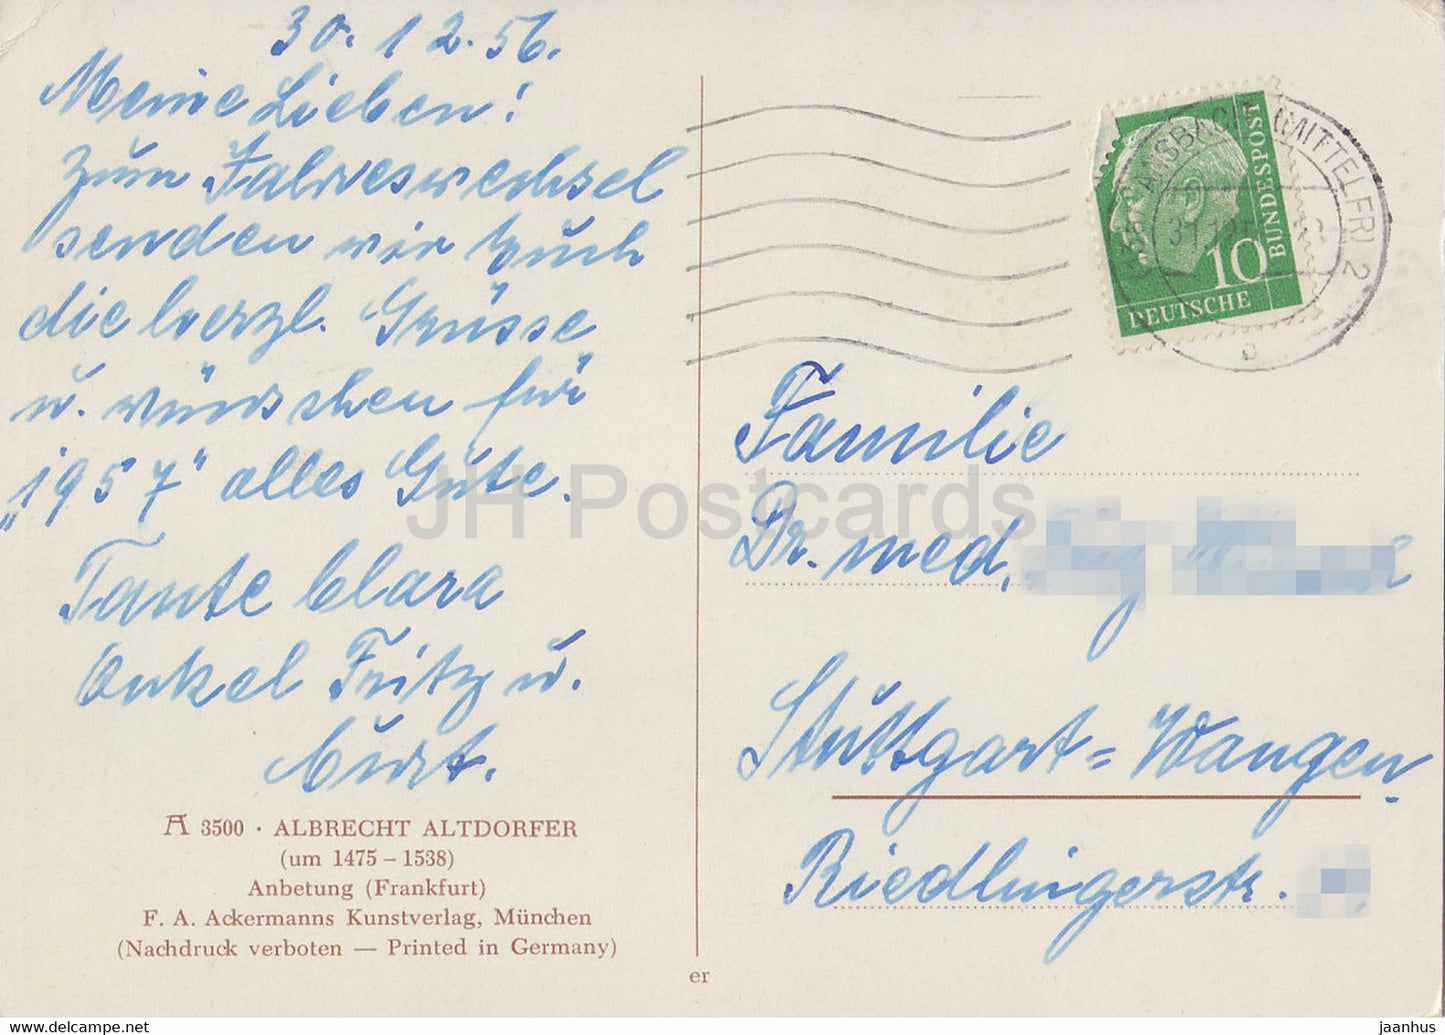 30. 12. 56.
Meine Lieben!
Zum Jahreswechsel
senden wir Euch
die herzl. Grüsse
u. wünschen für
„1957“ alles Gute.
Tante Clara
Onkel Fritz u.
Curt.
A 3500 · ALBRECHT ALTDORFER
(um 1475 – 1538)
Anbetung (Frankfurt)
F. A. Ackermanns Kunstverlag, München
(Nachdruck verboten — Printed in Germany)
er
ANSBACH (MITTELFR) 2
b
10
DEUTSCHE
BUNDESPOST
Familie
Dr. med.
Stuttgart=Wangen
Riedlingerstr.
JH Postcards
hipstamp.com/store/jaanhus